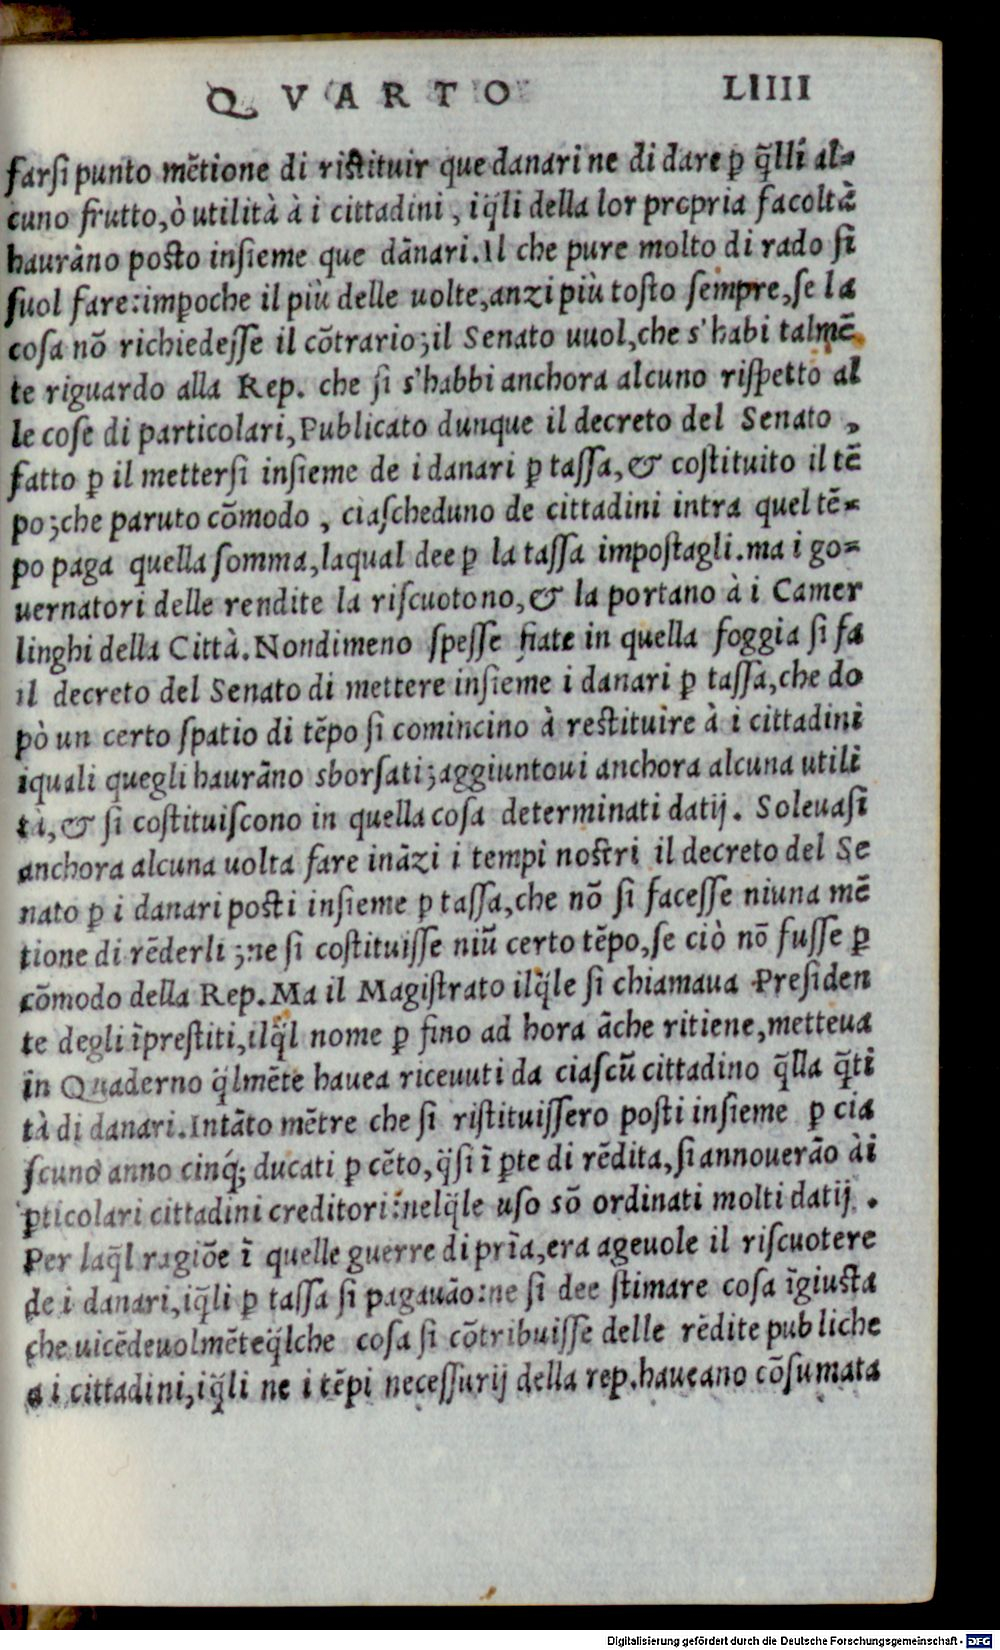 QVARTO LIIII
farsi punto mẽtione di ristituir que danari ne di dare ꝑ q̃lli al-
cuno frutto, ò utilità à i cittadini, iq̃li della lor propria facoltà
hauràno posto insieme que dãnari. Il che pure molto di rado si
suol fare: imꝑoche il più delle uolte, anzi più tosto sempre, se la
cosa nõ richiedesse il cõtrario; il Senato uuol, che s'habi talmẽ
te riguardo alla Rep. che si s'habbi anchora alcuno rispetto al
le cose di particolari, Publicato dunque il decreto del Senato,
fatto ꝑ il mettersi insieme de i danari ꝑ tassa, & costituito il tẽ
po; che paruto cõmodo, ciascheduno de cittadini intra quel tẽ-
po paga quella somma, laqual dee ꝑ la tassa impostagli. ma i go-
uernatori delle rendite la riscuotono, & la portano à i Camer
linghi della Città. Nondimeno spesse fiate in quella foggia si fa
il decreto del Senato di mettere insieme i danari ꝑ tassa, che do
pò un certo spatio di tẽpo si comincino à restituire à i cittadini
iquali quegli haurãno sborsati; aggiuntoui anchora alcuna utili
tà, & si costituiscono in quella cosa determinati datij. Soleuasi
anchora alcuna uolta fare inãzi i tempi nostri il decreto del Se
nato ꝑ i danari posti insieme ꝑ tassa, che nõ si facesse niuna mẽ
tione di rẽderli; ne si costituisse niũ certo tẽpo, se ciò nõ fusse ꝑ
cõmodo della Rep. Ma il Magistrato ilq̃le si chiamaua Presiden
te degli ĩprestiti, ilq̃l nome ꝑ fino ad hora ãche ritiene, metteua
in Quaderno q̃lmẽte hauea riceuuti da ciascũ cittadino q̃lla q̃ti
tà di danari. Intãto mẽtre che si ristituissero posti insieme ꝑ cia
scuno anno cinq́; ducati ꝑ cẽto, q̃si ĩ ꝑte di rẽdita, si annouerão ài
ꝑticolari cittadini creditori: nelq̃le uso sõ ordinati molti datij.
Per laq̃l ragiõe ĩ quelle guerre di prĩa, era ageuole il riscuotere
de i danari, iq̃li ꝑ tassa si pagauão: ne si dee stimare cosa ĩgiusta
che uicẽdeuolmẽte q̃lche cosa si cõtribuisse delle rẽdite publiche
a i cittadini, iq̃li ne i tẽpi necessurij della rep. haueano cõsumata
Digitalisierung gefördert durch die Deutsche Forschungsgemeinschaft - DFG